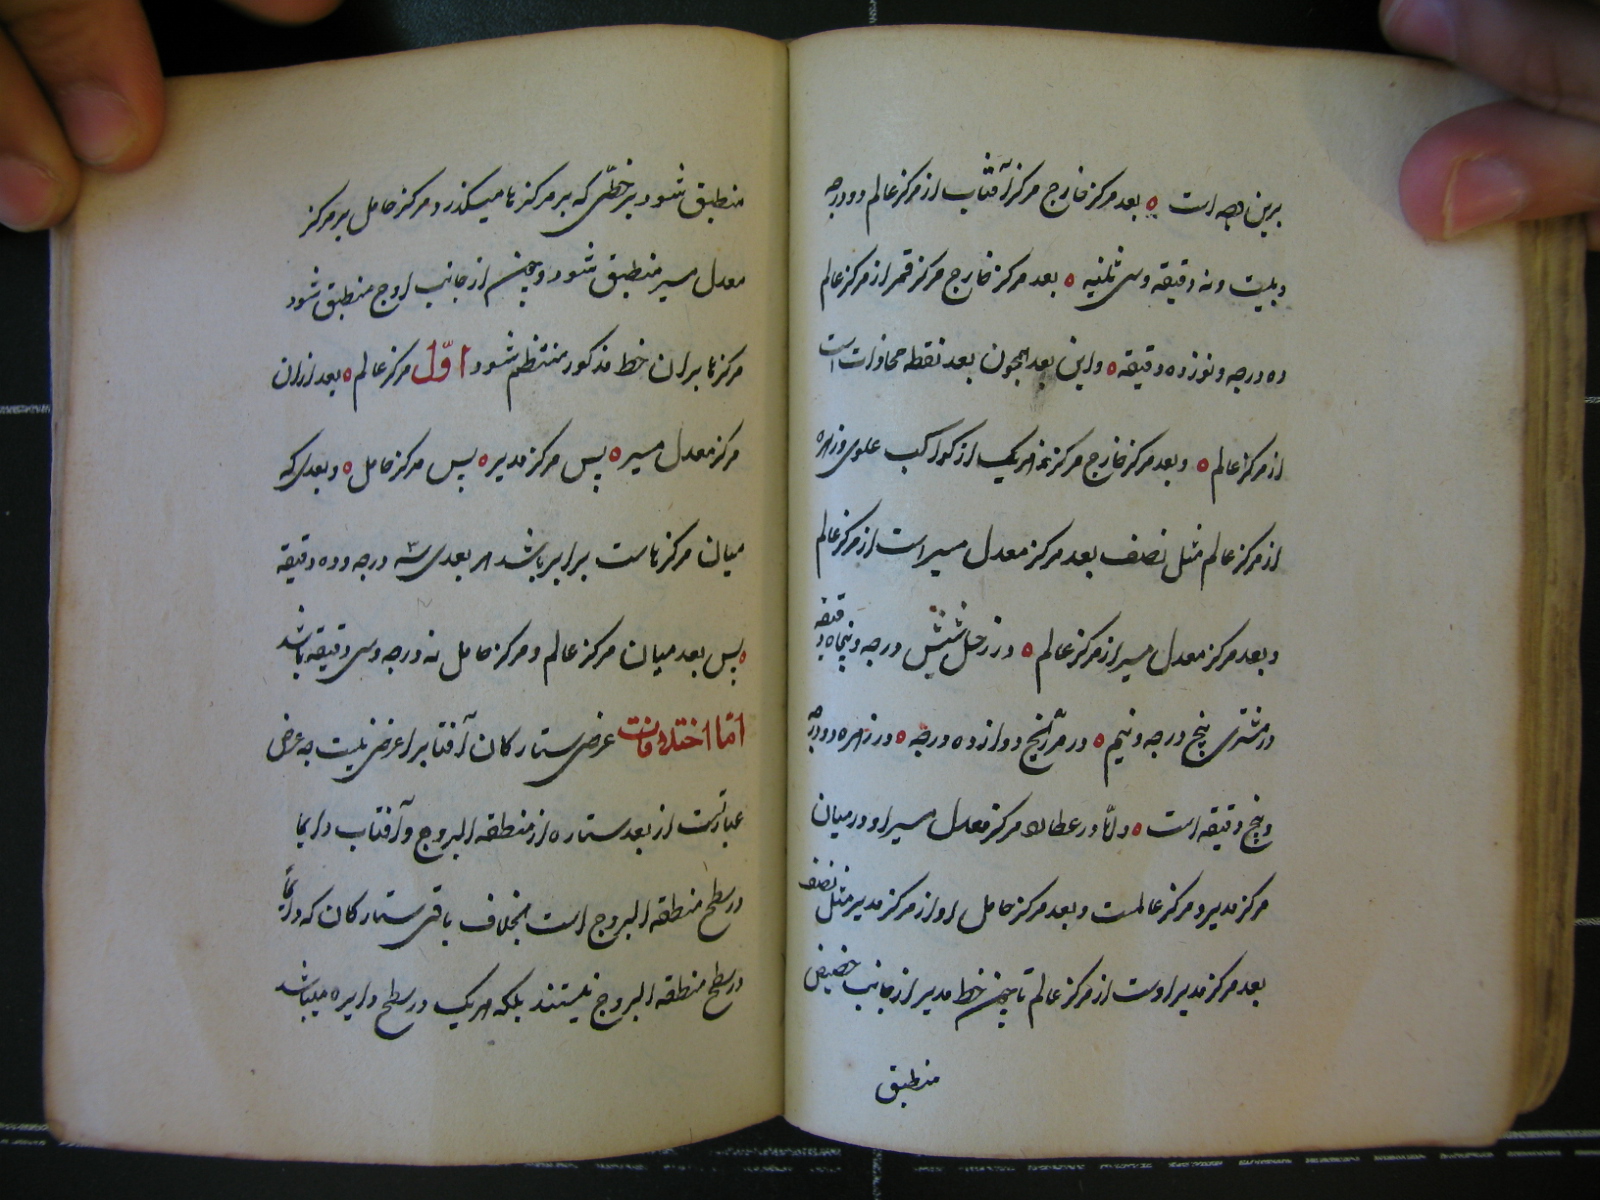 برین وجه است ه بعد مرکز خارج مرکز آفتاب از مرکز عالم دو درجه
و بیست و نه دقیقه وسی ثانیه ه بعد مرکز خارج مرکز قمر از مرکز عالم
ده درجه و نوزده دقیقه ه و این بعد همچون بعد نقطه محاذات است
از مرکز عالم ه و بعد مرکز خارج مرکز هر یک از کواکب علوی و زهره
از مرکز عالم مثل نصف بعد مرکز معدل مسیر است از مرکز عالم
و بعد مرکز معدل مسیر از مرکز عالم ه در زحل شش درجه و پنجاه دقیقه
در مشتری پنج درجه و نیم ه در مریخ دوازده درجه ه و در زهره دو درجه
و پنج دقیقه است ه و امّا در عطارد مرکز معدل مسیر او در میان
مرکز مدیر و مرکز عالمست و بعد مرکز حامل او از مرکز مدیر مثل نصف
بعد مرکز مدیر اوست از مرکز عالم تا چون خط مدیر از جانب حضیض
منطبق
منطبق شود بر خطّی که بر مرکزها میگذرد و مرکز حامل بر مرکز
معدل مسیر منطبق شود و چون از جانب اوج منطبق شود
مرکزها بران خط مذکور منتظم شود اوّل مرکز عالم ه بعد ازان
مرکز معدل مسیر ه پس مرکز مدیر ه پس مرکز حامل ه و بعدی که
میان مرکزهاست برابر باشد هر بعدی سه درجه و ده دقیقه
ه پس بعد میان مرکز عالم و مرکز حامل نه درجه و سی دقیقه باشد
امّا اختلافات عرضی ستارکان آفتابرا عرض نیست چه عرض
عبارتست از بعد ستاره از منطقه البروج و آفتاب دایما
در سطح منطقه البروج است بخلاف باقی ستارکان که دایماً
در سطح منطقه البروج نیستند بلکه هر یک در سطح دایره میباشد